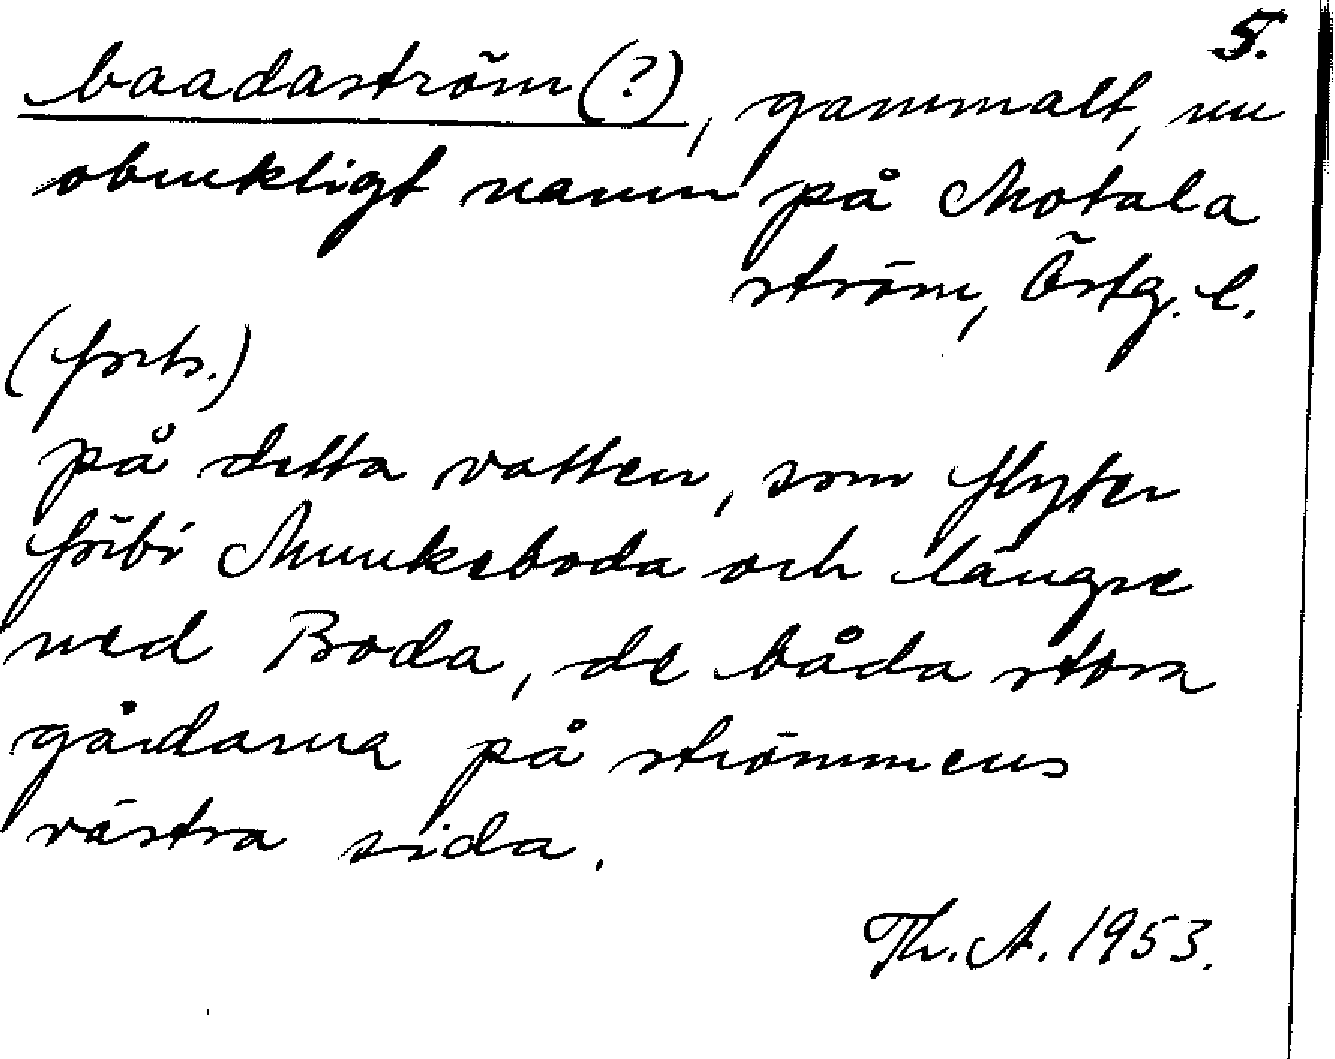 5.
baadaström(?), gammalt, nu
obrukligt namn på Motala
ström, Östg. l.
(forts.)
på detta vatten, som flyter
förbi Munkeboda och längre
ned Boda, de båda stora
gårdarna på strömmens
västra sida.
Th. A. 1953.